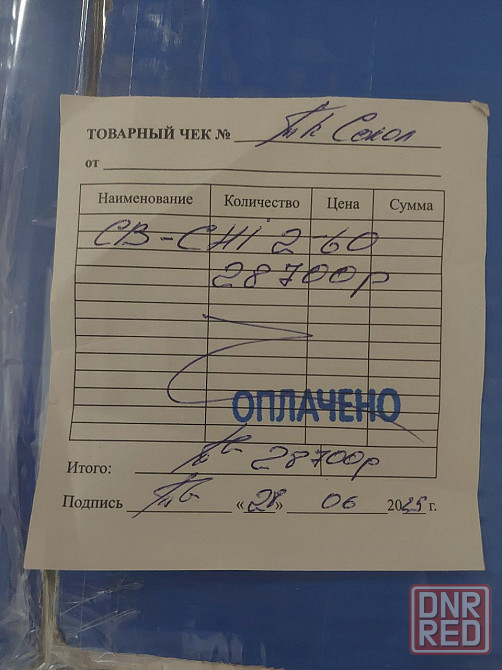 ТОВАРНЫЙ ЧЕК № Тк Сокол
от
Наименование Количество Цена Сумма
СВ-СНi 2-60
28700р
ОПЛАЧЕНО
Итого: 28700р
Подпись «28» 06 2025 г.
DNR
RED